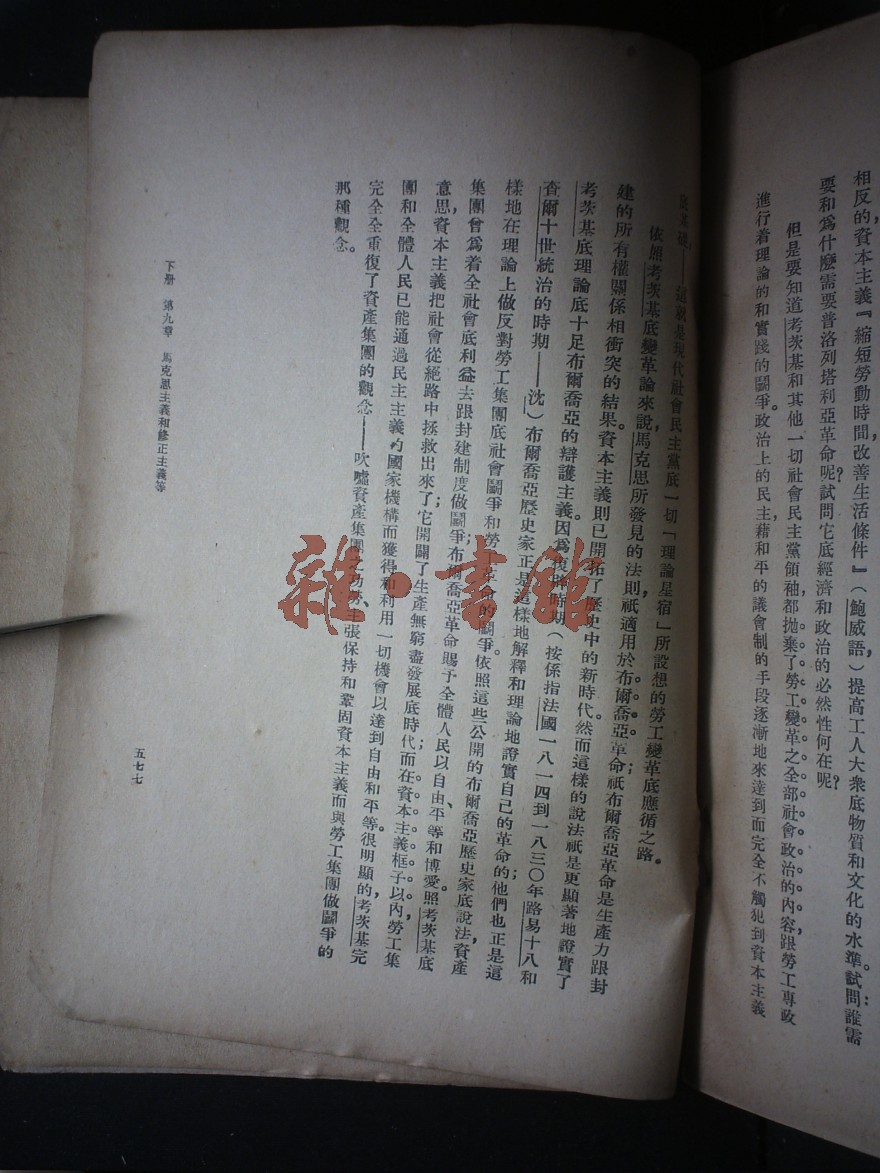 相反的資本主義『縮短勞動時間,改善生活條件』(鮑威語)提高工人大衆底物質和文化的水準。試問:誰需
要和爲什麼需要普洛列塔利亞革命呢?試問它底經濟和政治的必然性何在呢?
但是要知道考茨基和其他一切社會民主黨領袖,都拋棄了勞工變革之全部社會政治的內容,跟勞工專政
進行着理論的和實踐的鬭爭。政治上的民主,藉和平的議會制的手段逐漸地來達到而完全不觸犯到資本主義
這就是現代社會民主黨底一切「理論星宿」所設想的勞工變革底應循之路。
依照考茨基底變革論來說,馬克思所發見的法則祇適用於布爾喬亞革命;祇布爾喬亞革命是生產力跟封
建的所有權關係相衝突的結果。資本主義則已開拓了歷史中的新時代。然而這樣的說法祇是更顯著地證實了
考茨基底理論底十足布爾喬亞的辯護主義。因爲復辟時期(按係指法國一八一四到一八三〇年路易十八和
查爾十世統治的時期——沈)布爾喬亞歷史家正是這樣地解釋和理論地證實自己的革命的;他們也正是這
樣地在理論上做反對勞工集團底社會鬭爭和勞工革命的鬭爭。依照這些公開的布爾喬亞歷史家底說法,資產
集團曾爲着全社會底利益去跟封建制度做鬭爭;布爾喬亞革命賜予全體人民以自由、平等和博愛。照考茨基底
意思,資本主義把社會從絕路中拯救出來了;它開闢了生產無窮盡發展底時代;而在資本主義框子以內,勞工集
團和全體人民已能通過民主主義的國家機構而獲得和利用一切機會以達到自由和平等。很明顯的,考茨基完
完全全重復了資產集團的觀念——吹噓資產集團之功勞、主張保持和鞏固資本主義而與勞工集團做鬭爭的
那種觀念。
下册 第九章 馬克思主義和修正主義等
五七七
雜·書館